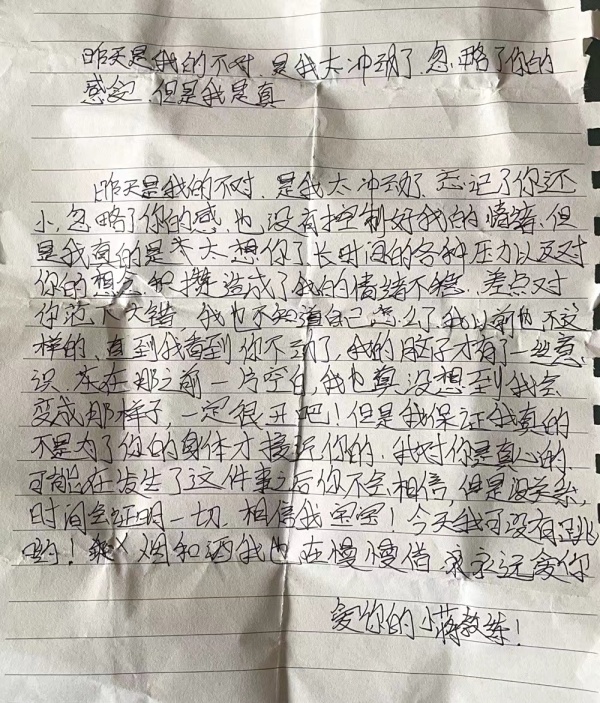 昨天是我的不对.是我太冲动了.忽略了你的
感觉.但是我是真
昨天是我的不对.是我太冲动了.忘记了你还
小,忽略了你的感.也没有控制好我的情绪.但
是我真的是太想你了长时间的各种压力以及对
你的想念积攒造成了我的情绪不稳.差点对
你犯下大错.我也不知道自己怎么了.我以前也不这
样的、直到我看到你不动了,我的脑子才有了一丝意
识.在那之前一片空白,我也真没想到我会
变成那样子,一定很开吧!但是我保证我真的
不是为了你的身体才接近你的.我对你是真心的
可能在发生了这件事之后你不会相信.但是没关系,
时间会证明一切.相信我宝宝!今天我可没有跳
哟!烟和酒我也在慢慢借.我永远爱你
爱你的小蒋教练!